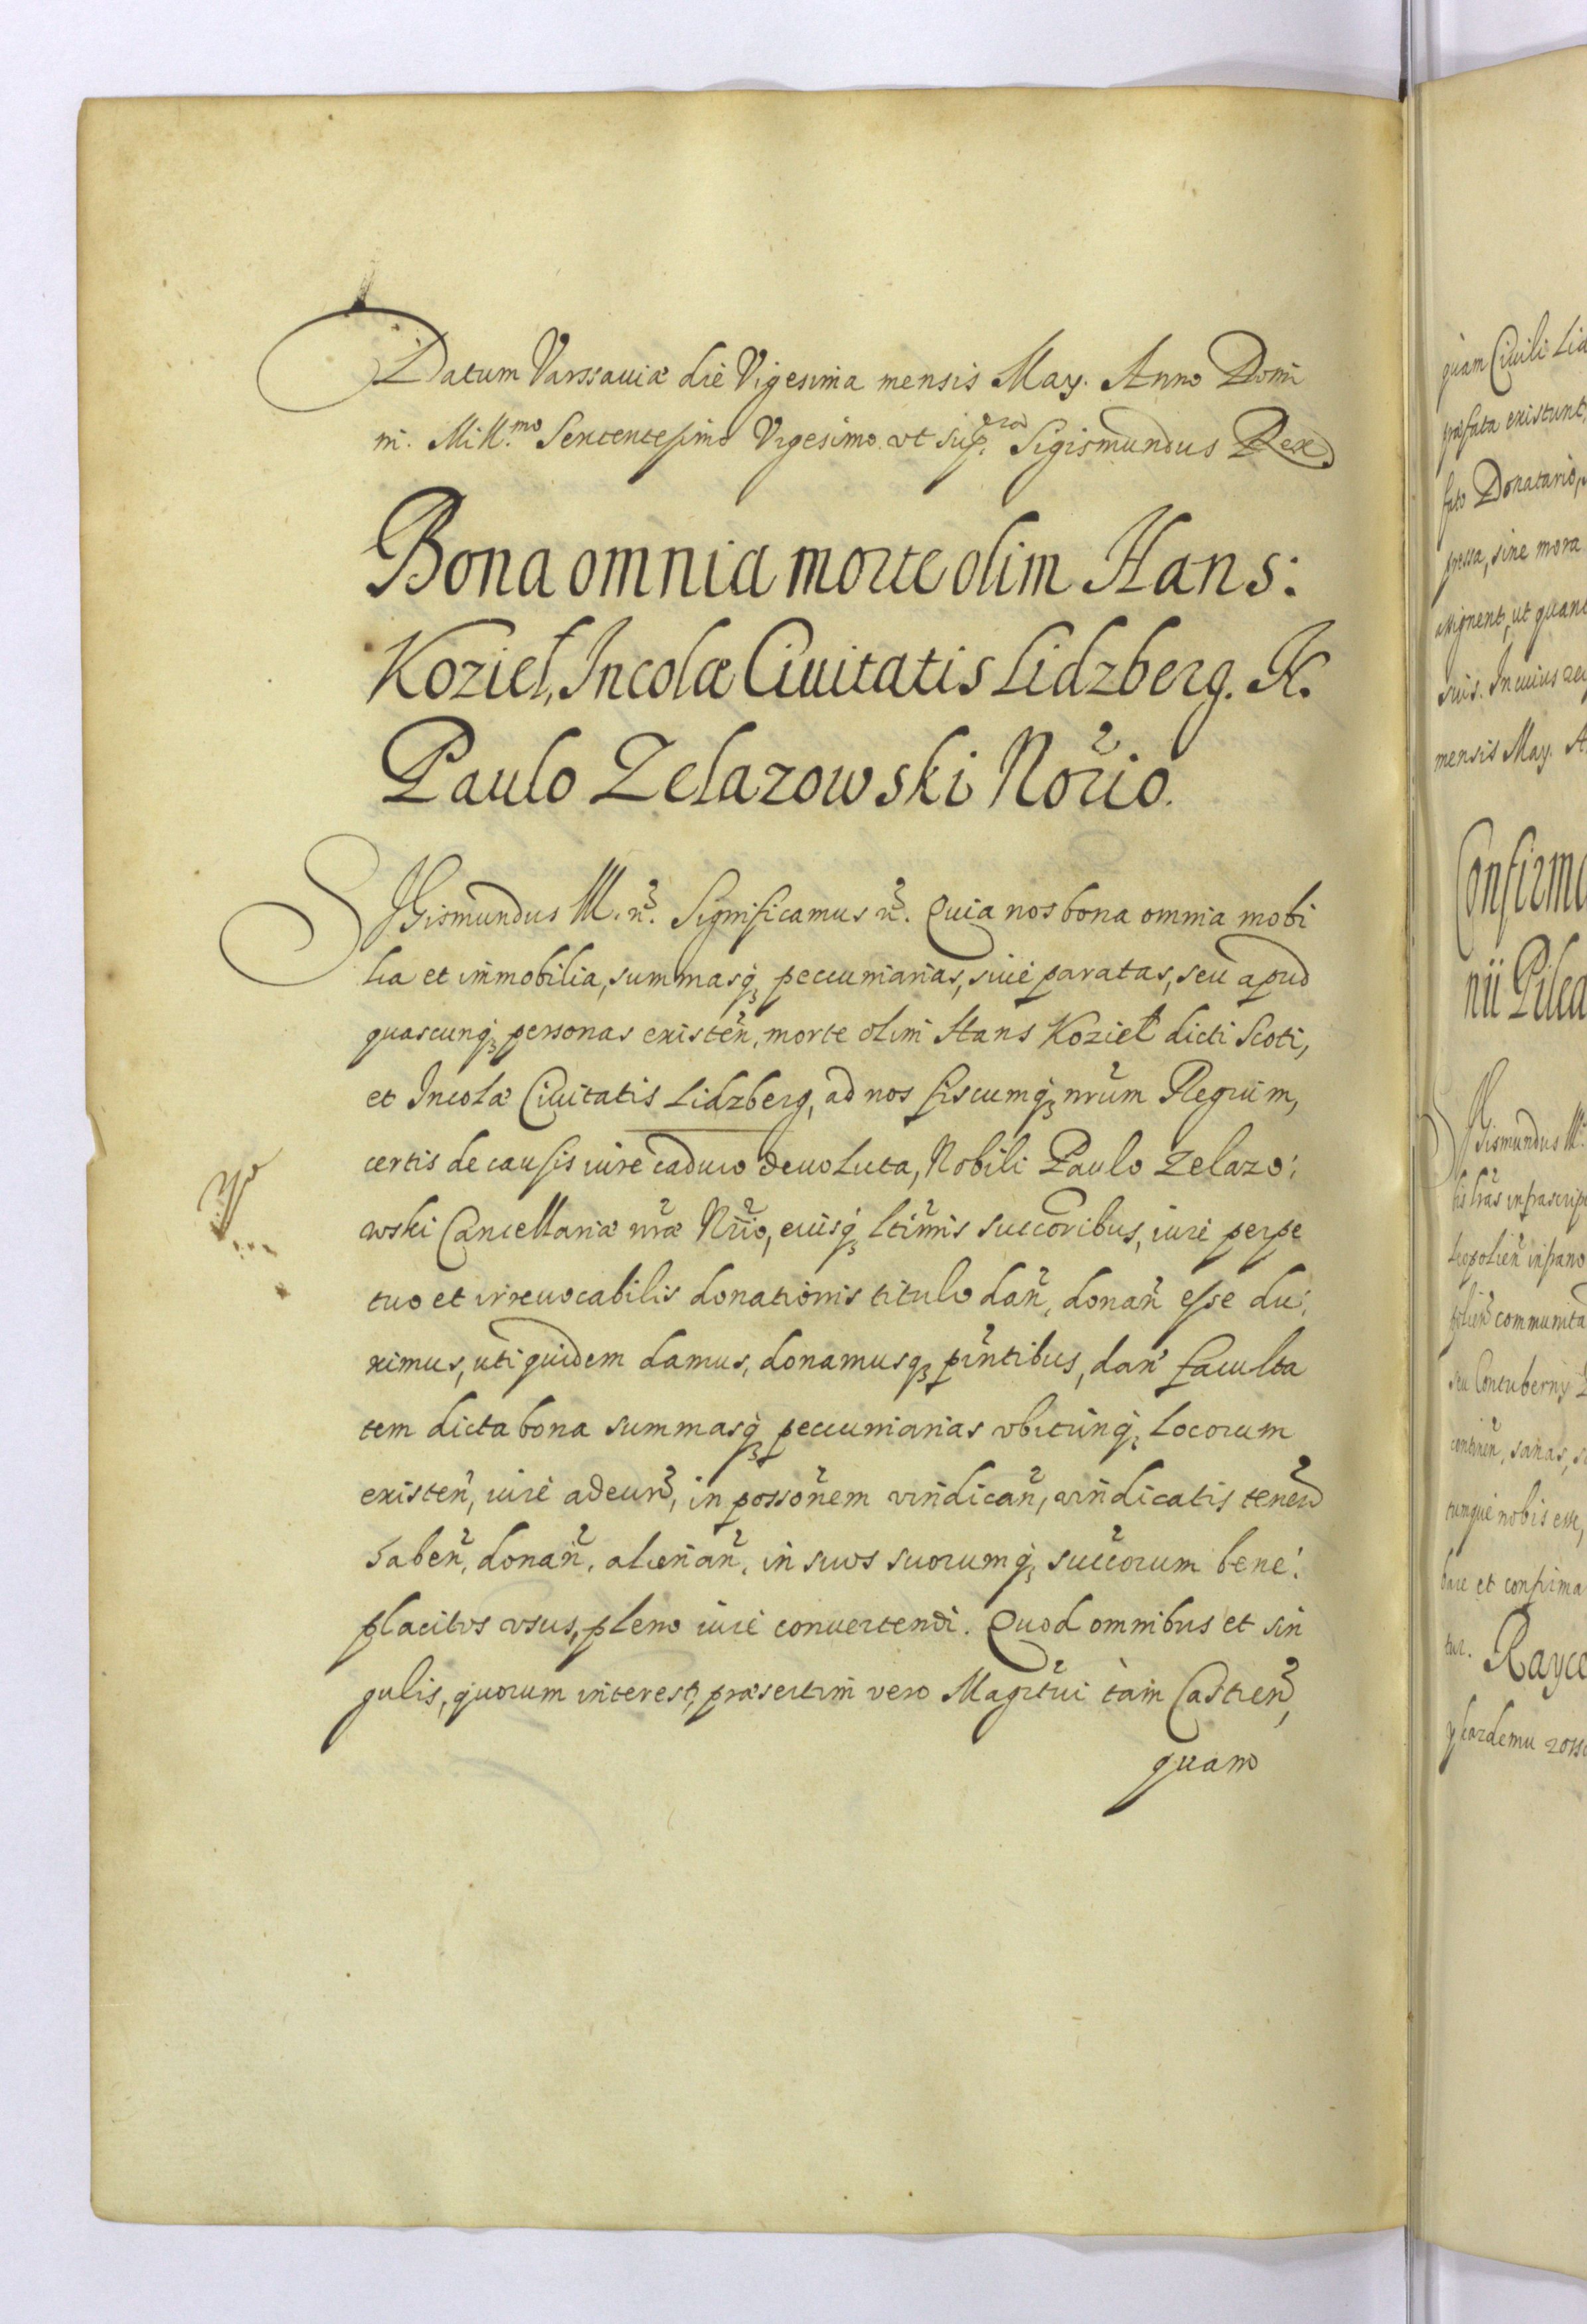 Datum Varssauiæ die Vigesima mensis May. Anno Domi
ni. Mill.mo Sexcentesimo Vigesimo. vt sup.ra Sigismundus Rex
Bona omnia morte olim Hans:
Kozieł, Incolæ Ciuitatis Lidzberg. K.
Paulo Zelazowski Nõrio.
SIGismundus III. ñ. Significamus ñ. Quia nos bona omnia mobi
lia et immobilia, summasq₃ peccuniarias, siue paratas, seu apud
quascunq₃ personas existeñ, morte olim Hans Kozieł dicti Scoti,
et Incolæ Ciuitatis Lidzberg, ad nos fiscumq₃ nrũm Regium,
certis de causis iure caduco deuoluta, Nobili Paulo Zelazo:
wski Cancellariæ nrãe Nrĩo, eiusq₃ ltĩmis succõribus, iure perpe
tuo et irreuocabilis donationis titulo dañ, donañ esse du:
ximus, uti quidem damus, donamusq₃ pñtibus, dañ faculta
tem dicta bona summasq₃ peccuniarias vbicunq₃ locorum
existeñ, iure adeuñd, in possõnem vindicañ, vindicatis teneñd
habeñ, donañ, alienañ, in suos suorumq₃ succõrum bene:
placitos vsus, pleno iure conuertendi. Quod omnibus et sin
gulis, quorum interest, præsertim vero Magr̃tui tam Castreñ,
quam
quam Ciuili Lid
præfata existunt,
fato Donatario,
pressa, sine mora
assignent, ut quam
suis. In cuius rei
mensis May. A
Confirma
nii Pilea
SIGismundus III.
infrascrip
communita
seu Contuberny
continẽn, sanas,
tumque nobis esse,
bare et confirma
tur. Rayce